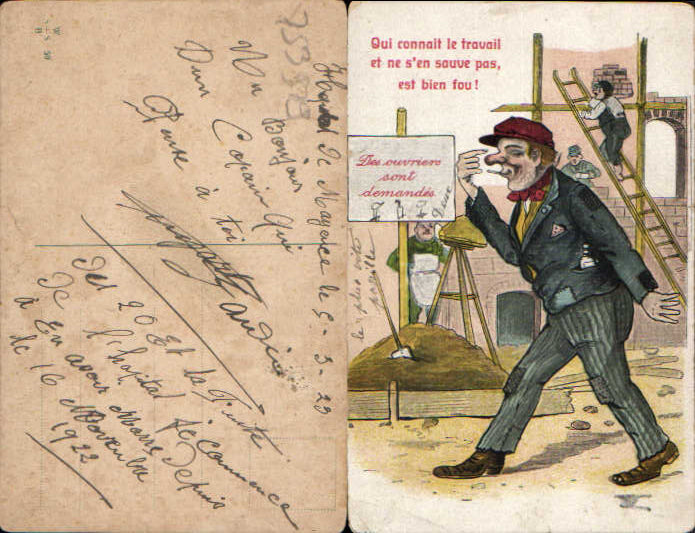 Hopital de Mayence le 5-3-23
Un Bonjour
D'un Copain Qui
Pense à toi
Det 20 Et la Fuite
De l'hopital je commence
à En avoir Marre Depuis
le 16 Novembre
1922
Qui connait le travail
et ne s'en sauve pas,
est bien fou!
Des ouvriers
sont
demandés.
le plus vite
possible